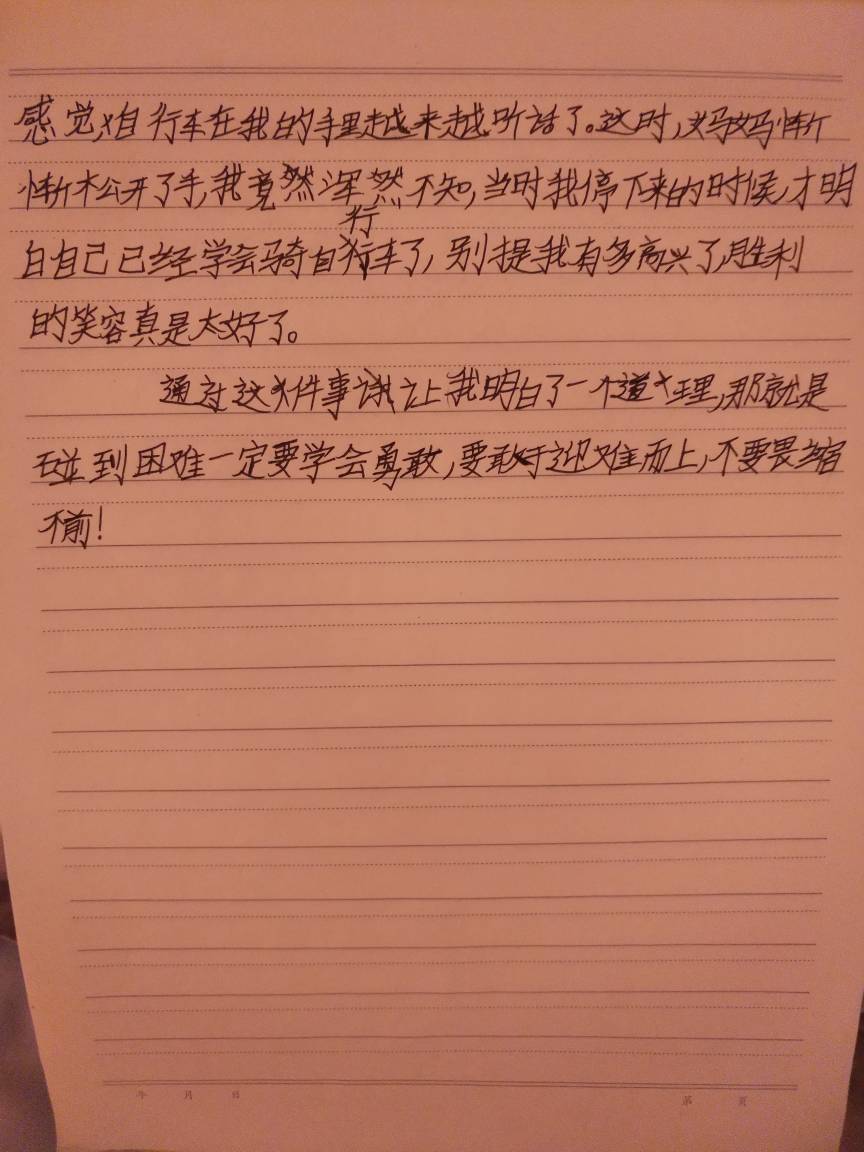 感觉,自行车在我的手里越来越听话了。这时,妈妈惭
惭松开了手,我竟然浑然不知,当时我停下来的时候,才明
行
白自己已经学会骑自行车了,别提我有多高兴了,胜利
的笑容真是太好了。
通过这件事让我明白了一个道理,那就是
碰到困难一定要学会勇敢,要敢于迎难而上,不要畏缩
不前!
年 月 日
第 页